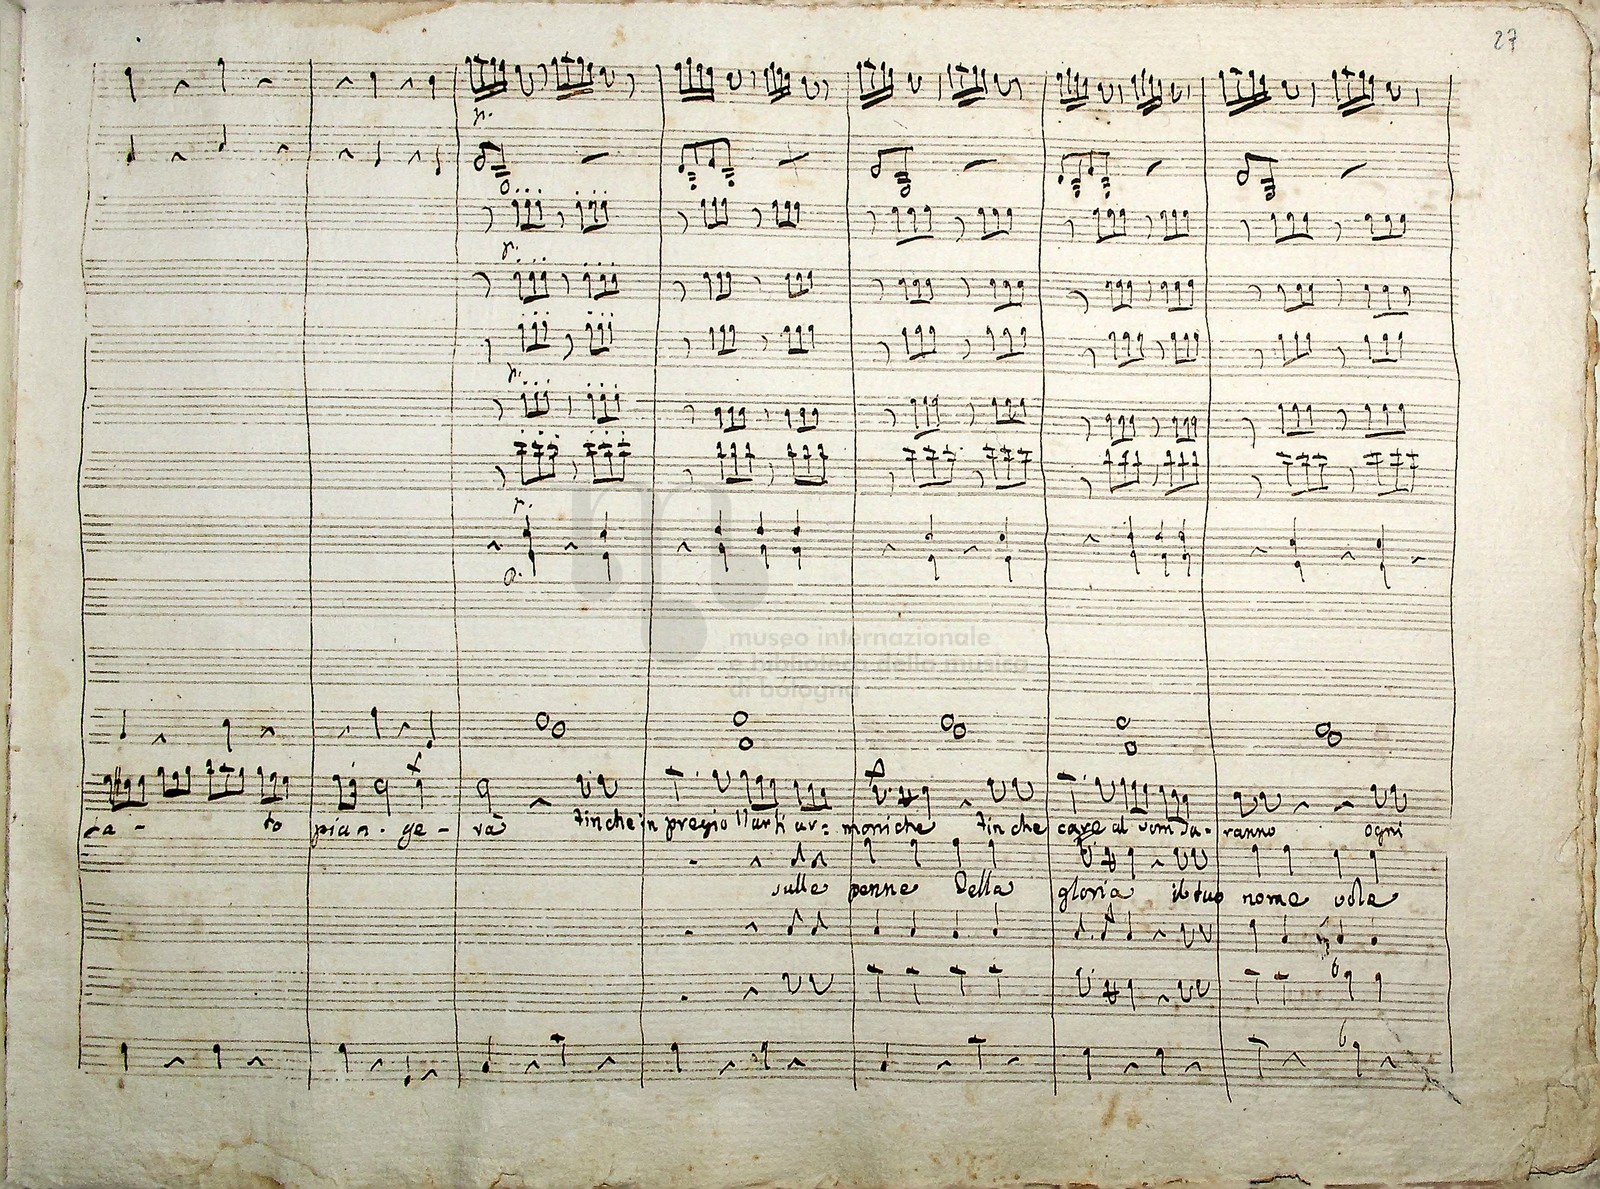 27
p.
p.
p.
p.
museo internazionale
e biblioteca della musica
di bologna
ca - to pian - ge - rà finche in pregio l'arti ar: moniche finche care al vom sa - ranno ogni
sulle penne della gloria il tuo nome vole